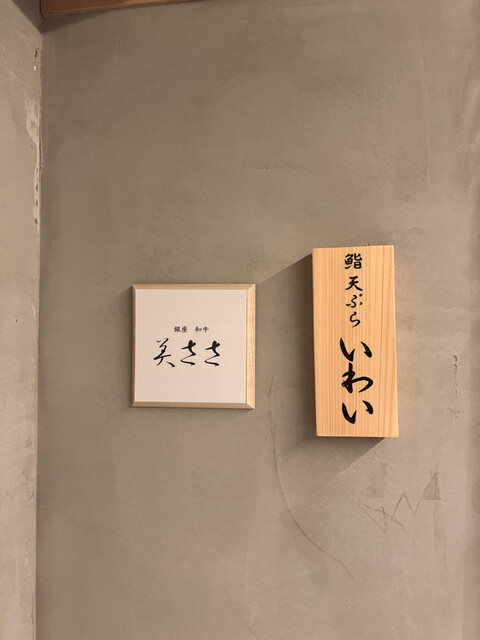 銀座 和牛
美ささ
鮨 天ぷら
いわい